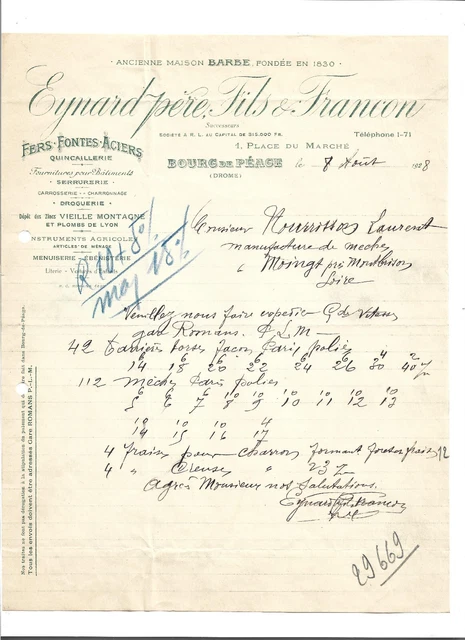 ANCIENNE MAISON BARBE, FONDÉE EN 1830
Eynard père, Fils & Francon
Successeurs
SOCIÉTÉ A R. L. AU CAPITAL DE 315.000 FR.
Téléphone 1-71
1, PLACE DU MARCHÉ
BOURG DE PÉAGE
(DROME)
le 8 Août 1928
FERS - FONTES - ACIERS
QUINCAILLERIE
Fournitures pour Bâtiments
SERRURERIE
CARROSSERIE - CHARRONNAGE
DROGUERIE
Dépôt des Zincs VIEILLE MONTAGNE
ET PLOMBS DE LYON
INSTRUMENTS AGRICOLES
ARTICLES DE MÉNAGE
MENUISERIE - ÉBÉNISTERIE
maj 15%
Monsieur Nourrisson Laurent
manufacture de mèches
à Moingt près Montbrison
Loire
Veuillez nous faire expedier G de Vitesse
gare Romans. P. L. M -
42 Tarrières torses façon Paris polies
6 6 6 6 6 6 4 2
14 18 20 22 24 26 30 40
112 Mèches Paris polies
5 6 7 8 9 10 11 12 13
10 10 10 4
14 15 16 17
4 fraises pour charrons formant foret fraise
4 " Creuses " 23
Agréez Monsieur nos Salutations.
Eynard père fils & Francon
29669
Tous les envois doivent être adressés Gare ROMANS P.-L.-M.